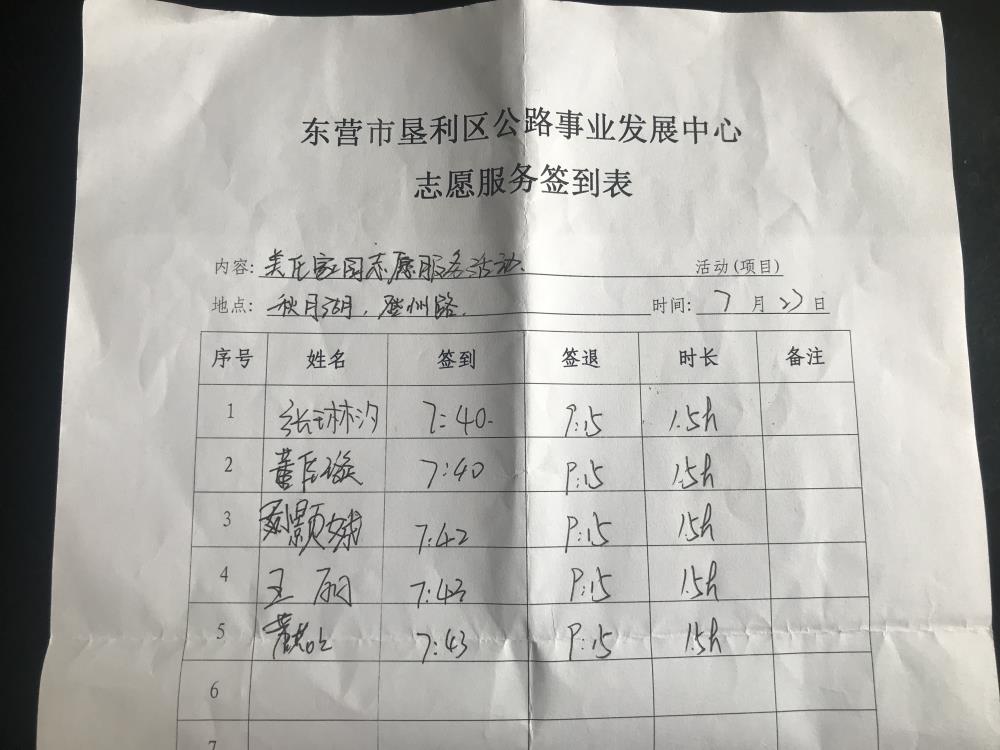 东营市垦利区公路事业发展中心
志愿服务签到表
内容: 美丘家园志愿服务活动. 活动(项目)
地点: 秋月湖, 胜州路. 时间: 7 月 27 日
序号 姓名 签到 签退 时长 备注
1 张琳汐 7:40. 9:15 1.5h
2 董 7:40 9:15 1.5h
3 7:42 9:15 1.5h
4 王丽 7:43 9:15 1.5h
5 7:43 9:15 1.5h
6
7